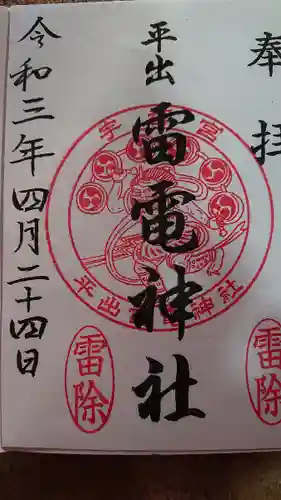 奉拝
平出
雷電神社
令和三年四月二十四日
宇宮
平出雷電神社
雷除
雷除